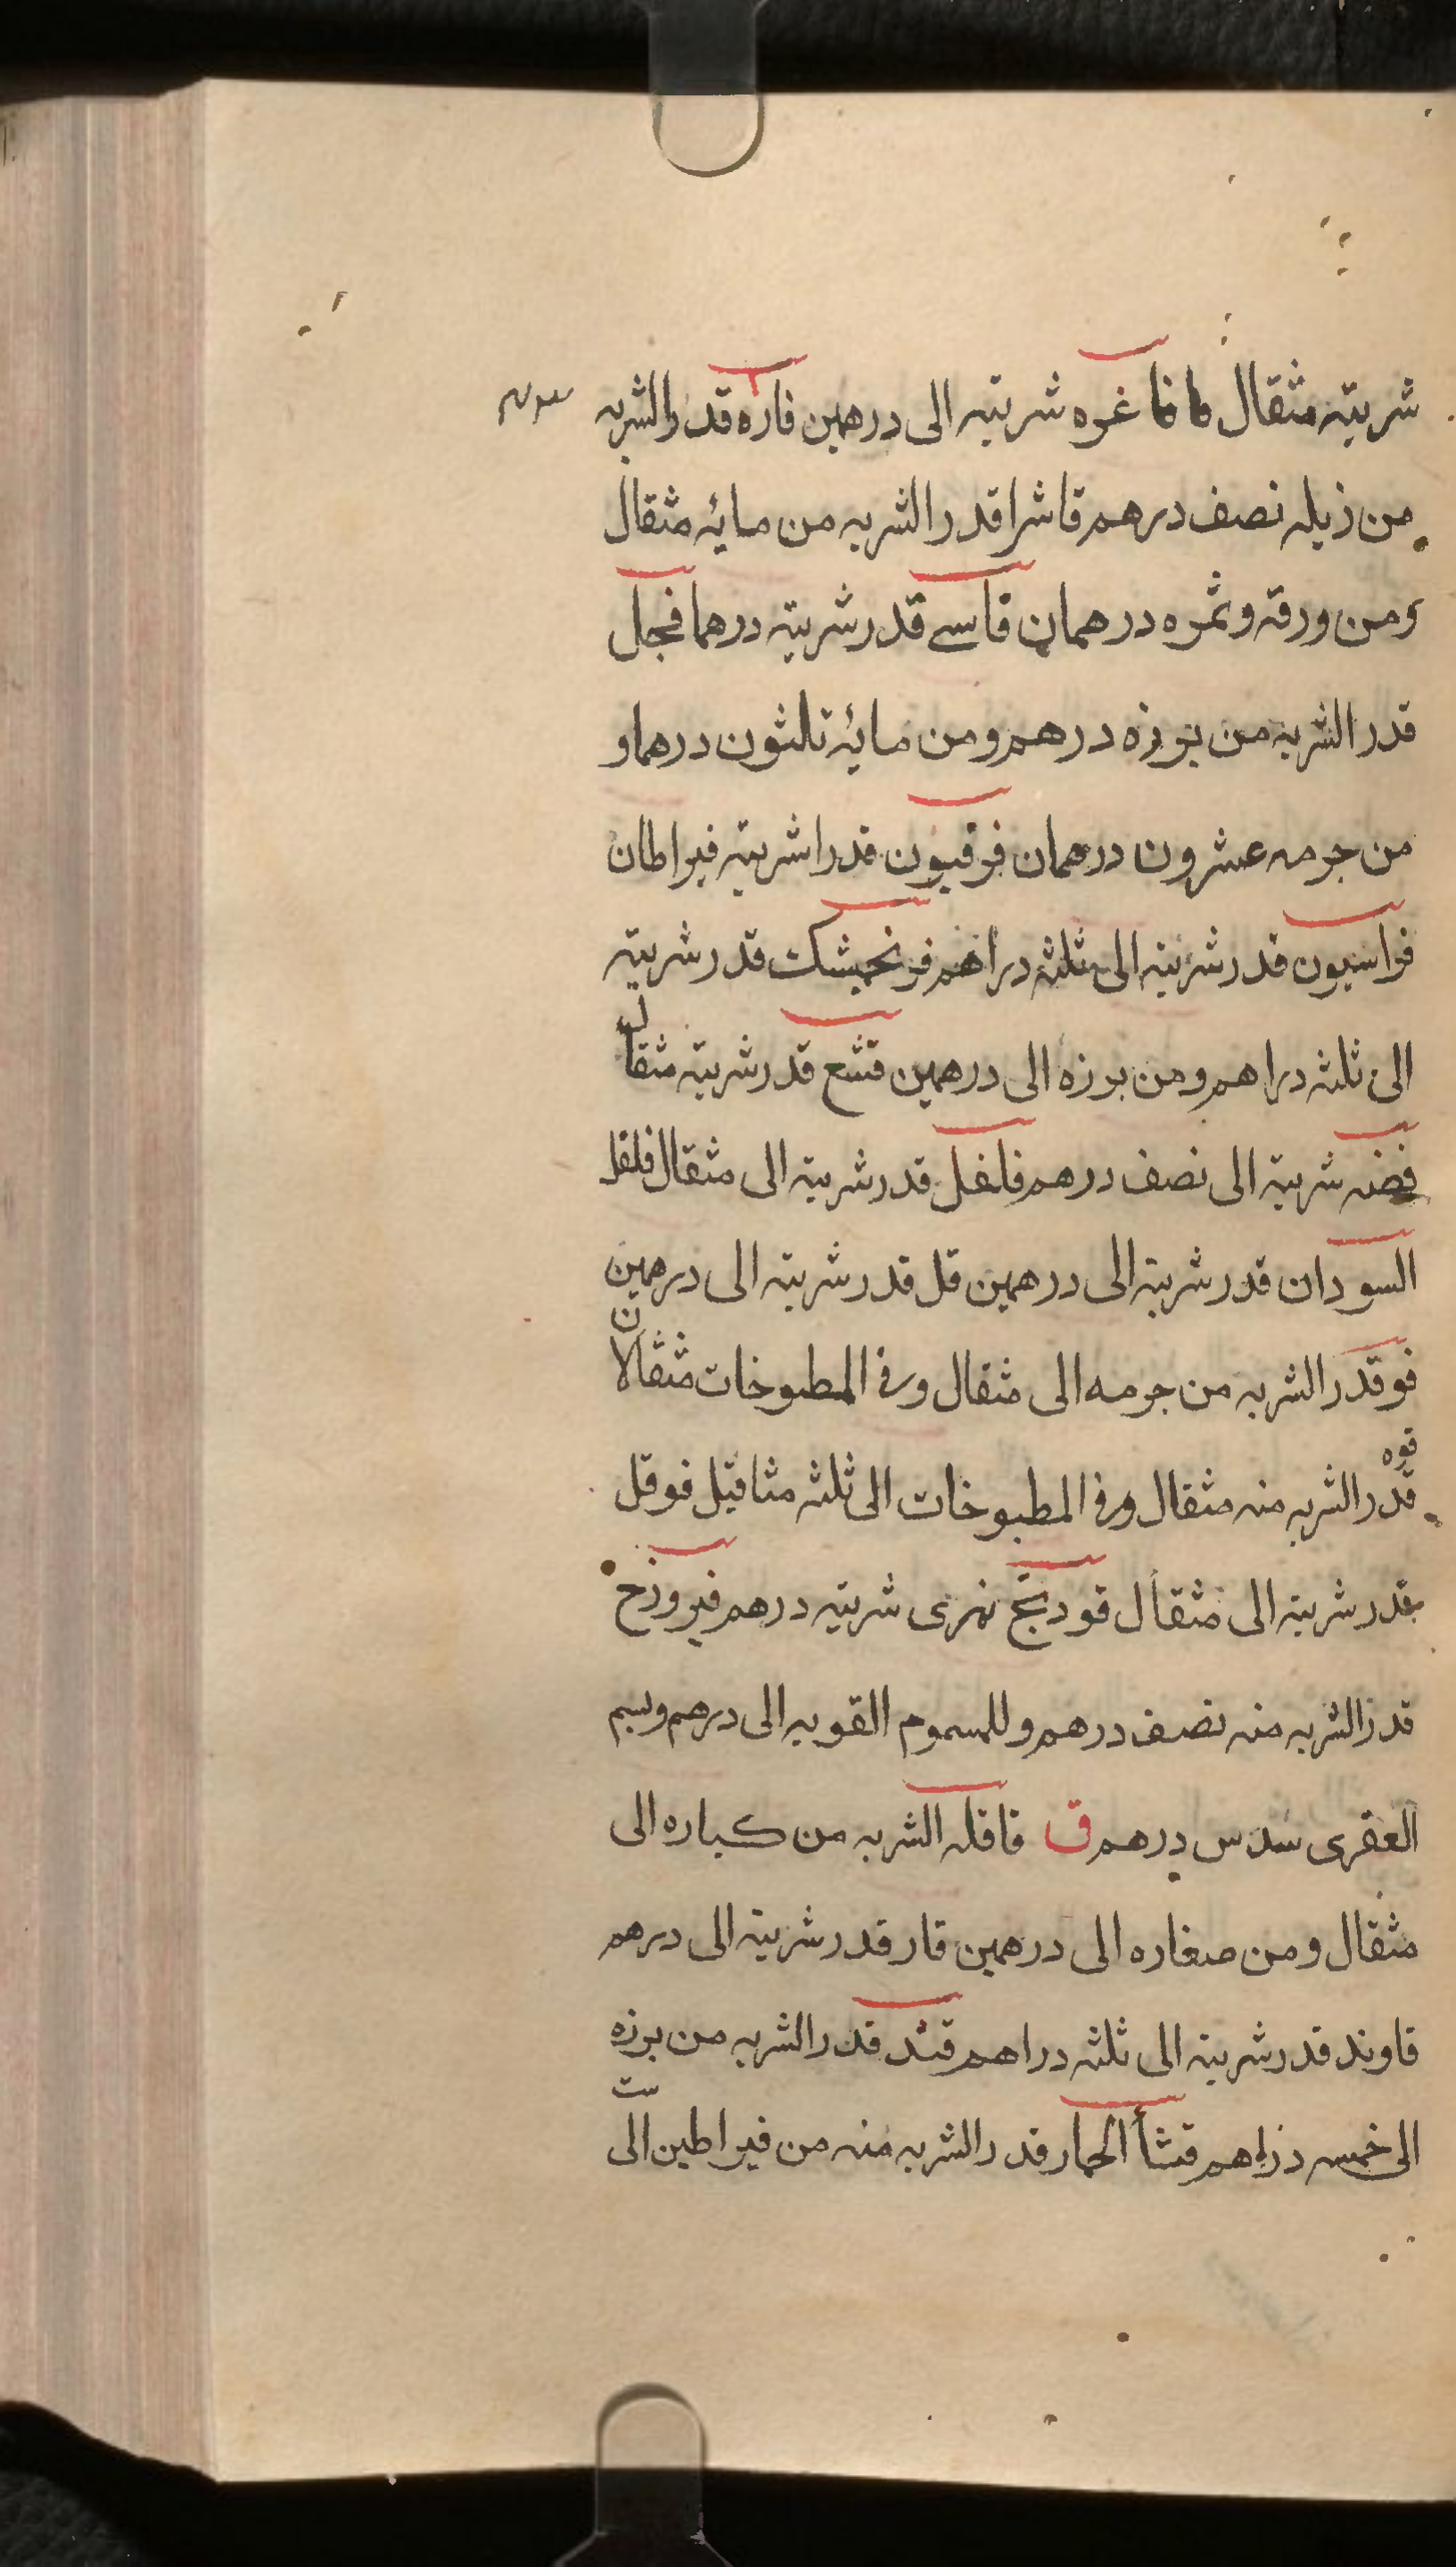 شربته مثقال فا فاغره شربته الى درهمين فاره قدر الشربه
من زبله نصف درهم فاشرا قدر الشربه من مايه مثقال
ومن ورقه وثمره درهمان فاسى قدر شربته درهما فجل
قدر الشربه من بوزه درهم ومن مايه ثلثون درهما و
من جرمه عشرون درهمان فرفيون قدرا شربته قيراطان
فراسيون قدر شربته الى ثلثه دراهم فرنجمشك قدر شربته
الى ثلثه دراهم ومن برزه الى درهمين فشع قدر شربته مثقال
فضه شربته الى نصف درهم فلفل قدر شربته الى مثقال فلفل
السودان قدر شربته الى درهمين فل قدر شربته الى درهمين
فو قدر الشربه من جرمه الى مثقال وفى المطبوخات مثقالان
فوه
قدر الشربه منه مثقال وفى المطبوخات الى ثلثه مثاقيل فوفل
قدر شربته الى مثقال فودنج نهرى شربته درهم فيروزج
قدر الشربه منه نصف درهم وللسموم القويه الى درهم وسم
العقرى سدس درهم ق قاقله الشربه من كباره الى
مثقال ومن صغاره الى درهمين قار قدر شربته الى درهم
قاوند قدر شربته الى ثلثه دراهم قند قدر الشربه من برزه
الى خمسه دراهم قثأ الحمار قدر الشربه منه من قيراطين الى ست